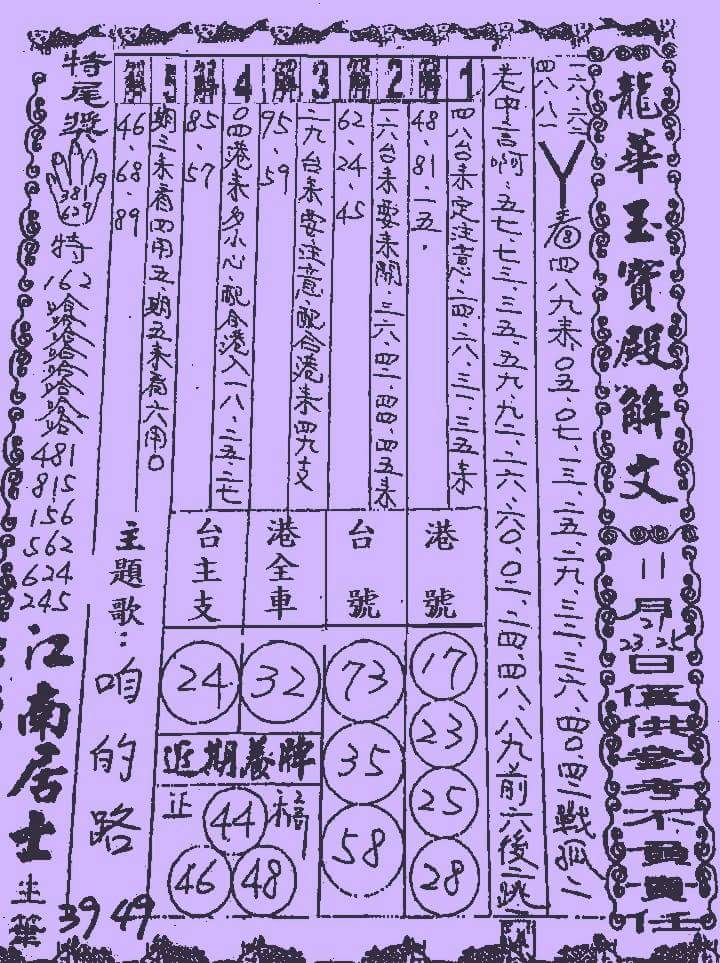 龍華玉寶殿解文
11月21 23.25日僅供參考不負責任
一六.六二
四八.八一
丫看⑧四八九來.0五.0七.一三.二五.二九.三二.三六.四0.四二戰孤二
老中言啊:五七.七三.三五.五九.九二.二六.六0.0二.二四.四八.八九前六後二跳一
1
四八台來定注意.二四.二六.三一.三五來
解
48.81.一五.
2
一六台來要來開.三六.四二.四四.四五來
解
62.24.45
3
二九台來要注意.配合港來四九支
解
95.59
4
0四港來多小心.配合港入一八.二五.二七
解
85.57
5
期三來看四用五.期五來看六用0
解
46.68.89
港號
17
23
25
28
台號
73
35
58
港全車
32
台主支
24
近期養牌
正 44
46 48
主題歌:咱的路
39 49
特尾獎
381
629
特
162
哈哈哈哈哈
481
815
156
562
624
245
江南居士主筆